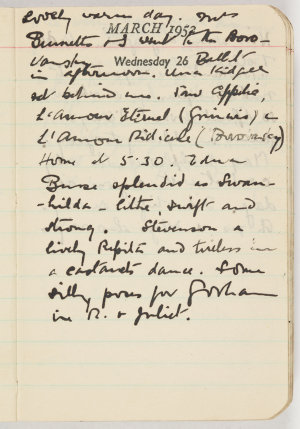 Lovely warm day. Mrs
MARCH 1952
Burnett & I went to the Boro-
vansky Wednesday 26 Ballet
in afternoon. Una Kidgell
sat behind us. Saw Coppelia,
L'Amour Eternel (Grinwis) &
L'Amour Ridicule (Borovansky)
Home at 5.30. Edna
Busse splendid as Swan-
-hilda - lithe, swift and
strong. Stevenson a
lively Pepita and tireless in
a castanets dance. Some
silly poses for Gorham
in R. & Juliet.